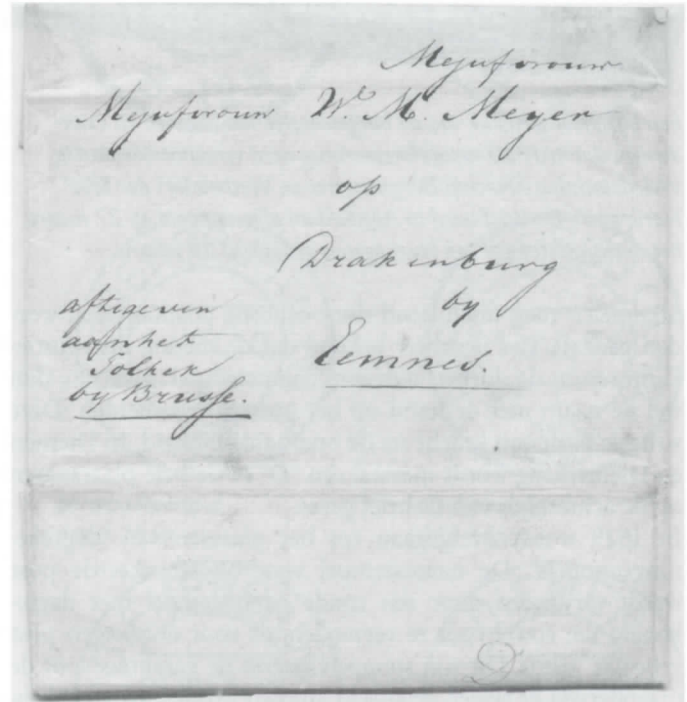 Mejufvrouw
Mejufvrouw W. M. Meyer
op
Drakenburg
by
Eemnes.
aftegeven
aanhet
Tolhek
by Brusse.
D